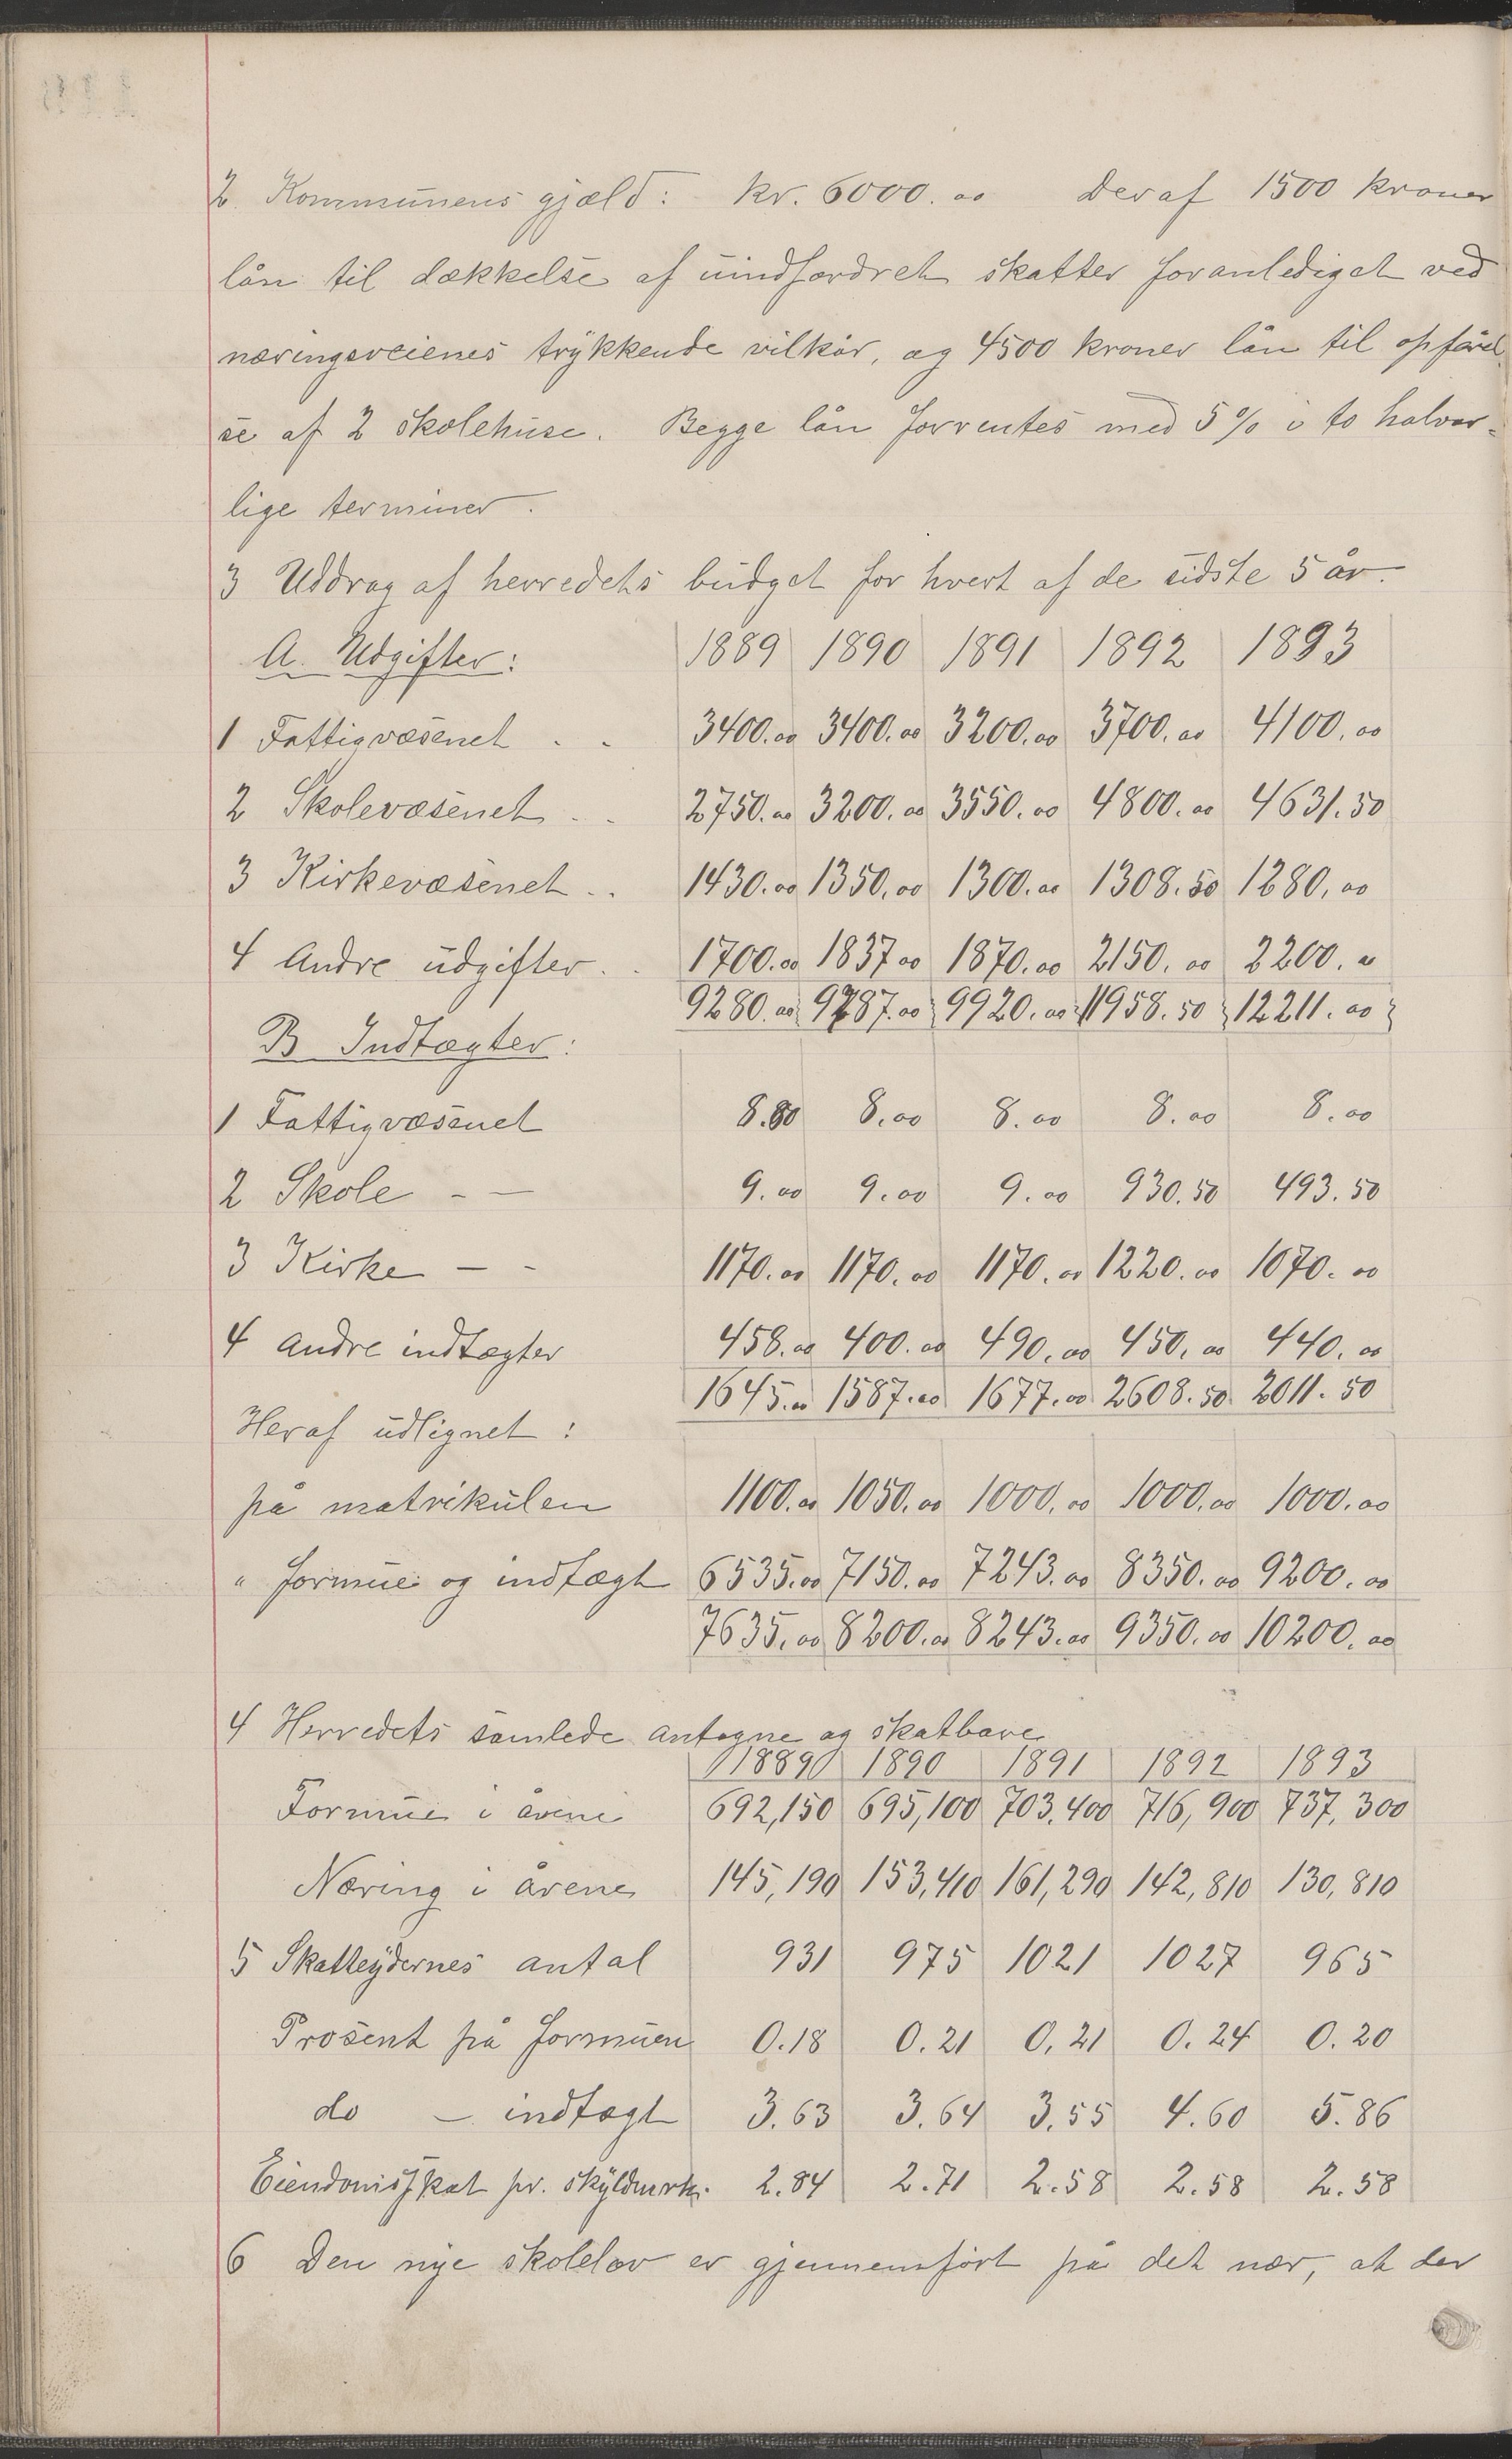 2. Kommunens gjæld: kr. 6000.00 Deraf 1500 kroner
lån til dækkelse af uindfordret skatter foranlediget ved
næringsveienes trykkende vilkår, og 4500 kroner lån til opførel
se af 2 skolehuse. Begge lån forrentes med 5% i to halvår-
lige terminer.
3 Uddrag af herredets budget for hvert af de sidste 5 år.
A. Udgifter: 1889 1890 1891 1892 1893
1 Fattigvæsenet . . 3400.00 3400.00 3200.00 3700.00 4100.00
2 Skolevæsenet . . 2750.00 3200.00 3550.00 4800.00 4631.50
3 Kirkevæsenet . . 1430.00 1350.00 1300.00 1308.50 1280.00
4 Andre udgifter . . 1700.00 1837 00 1870.00 2150.00 2200.00
9280.00 9787.00 9920.00 11958.50 12211.00
B Indtægter:
1 Fattigvæsenet 8.00 8.00 8.00 8.00 8.00
2 Skole - — 9.00 9.00 9.00 930.50 493.50
3 Kirke — - 1170.00 1170.00 1170.00 1220.00 1070.00
4 Andre indtægter 458.00 400.00 490.00 450.00 440.00
1645.00 1587.00 1677.00 2608.50 2011.50
Heraf udlignet:
på matrikulen 1100.00 1050.00 1000.00 1000.00 1000.00
" formue og indtægt 6535.00 7150.00 7243.00 8350.00 9200.00
7635.00 8200.00 8243.00 9350.00 10200.00
4 Herredets samlede antagne og skatbare
1889 1890 1891 1892 1893
Formue i årene 692,150 695,100 703,400 716,900 737,300
Næring i årene 145,190 153,410 161,290 142,810 130,810
5 Skatteydernes antal 931 975 1021 1027 965
Prosent på formuen 0.18 0.21 0.21 0.24 0.20
do — indtægt 3.63 3.64 3.55 4.60 5.86
Eiendomsskat pr. skyldmrk. 2.84 2.71 2.58 2.58 2.58
6 Den nye skolelov er gjennemført på det nær, at der